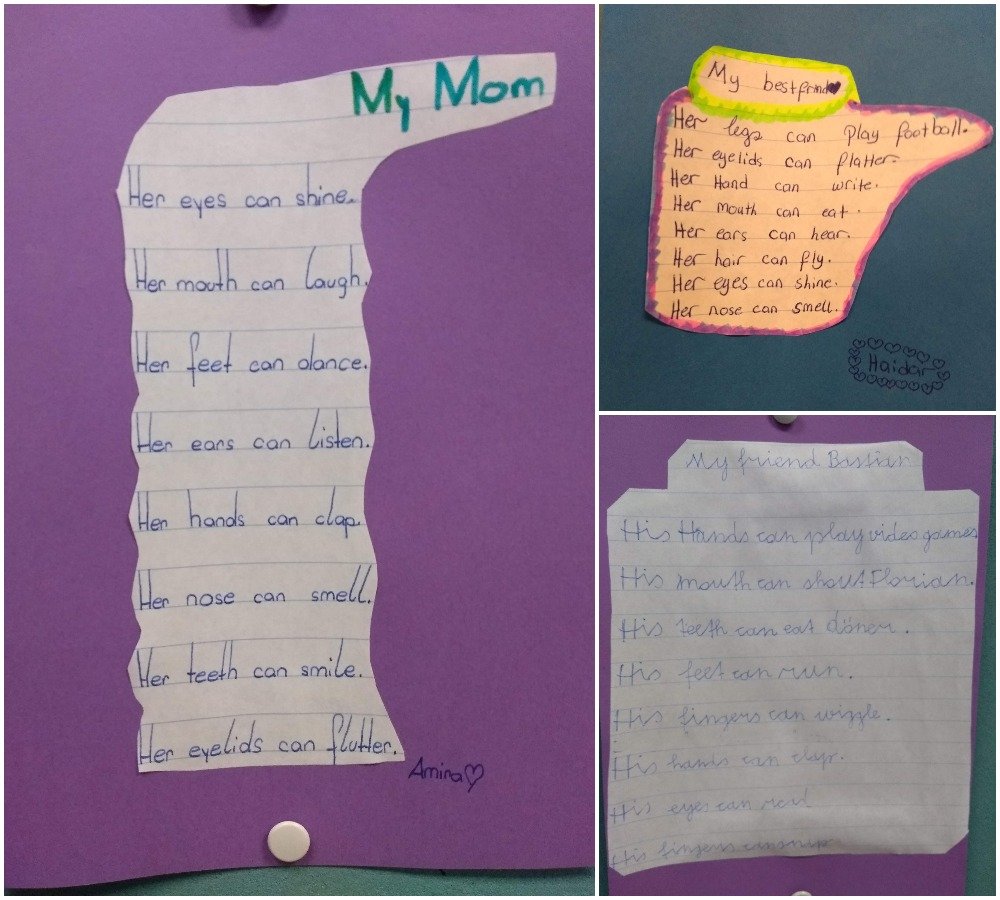 My Mom
Her eyes can shine.
Her mouth can laugh.
Her feet can dance.
Her ears can listen.
Her hands can clap.
Her nose can smell.
Her teeth can smile.
Her eyelids can flutter.
Amina♡
My bestfrind♥
Her legs can play football.
Her eyelids can flatter.
Her Hand can write.
Her mouth can eat.
Her ears can hear.
Her hair can fly.
Her eyes can shine.
Her nose can smell.
Haidar
My friend Bastian
His Hands can play video games
His mouth can shout Florian.
His teeth can eat döner.
His feet can run.
His fingers can wiggle.
His hands can clap.
His eyes can read
His fingers can snip